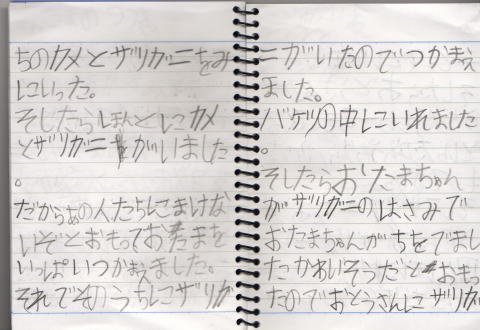 ちのカメとザリガニをみ
にいった。
そしたらほんとにカメ
とザリガニがいました
。
だからあの人たちにまけな
いぞとおもっておたまを
いっぱいつかまえました。
それでそのうちにザリガ
ニがいたのでつかまえ
ました。
バケツの中にいれました
。
そしたらおたまちゃん
がザリガニのはさみで
おたまちゃんがちをでまし
たかわいそうだとおもっ
たのでおとうさんにザリガ